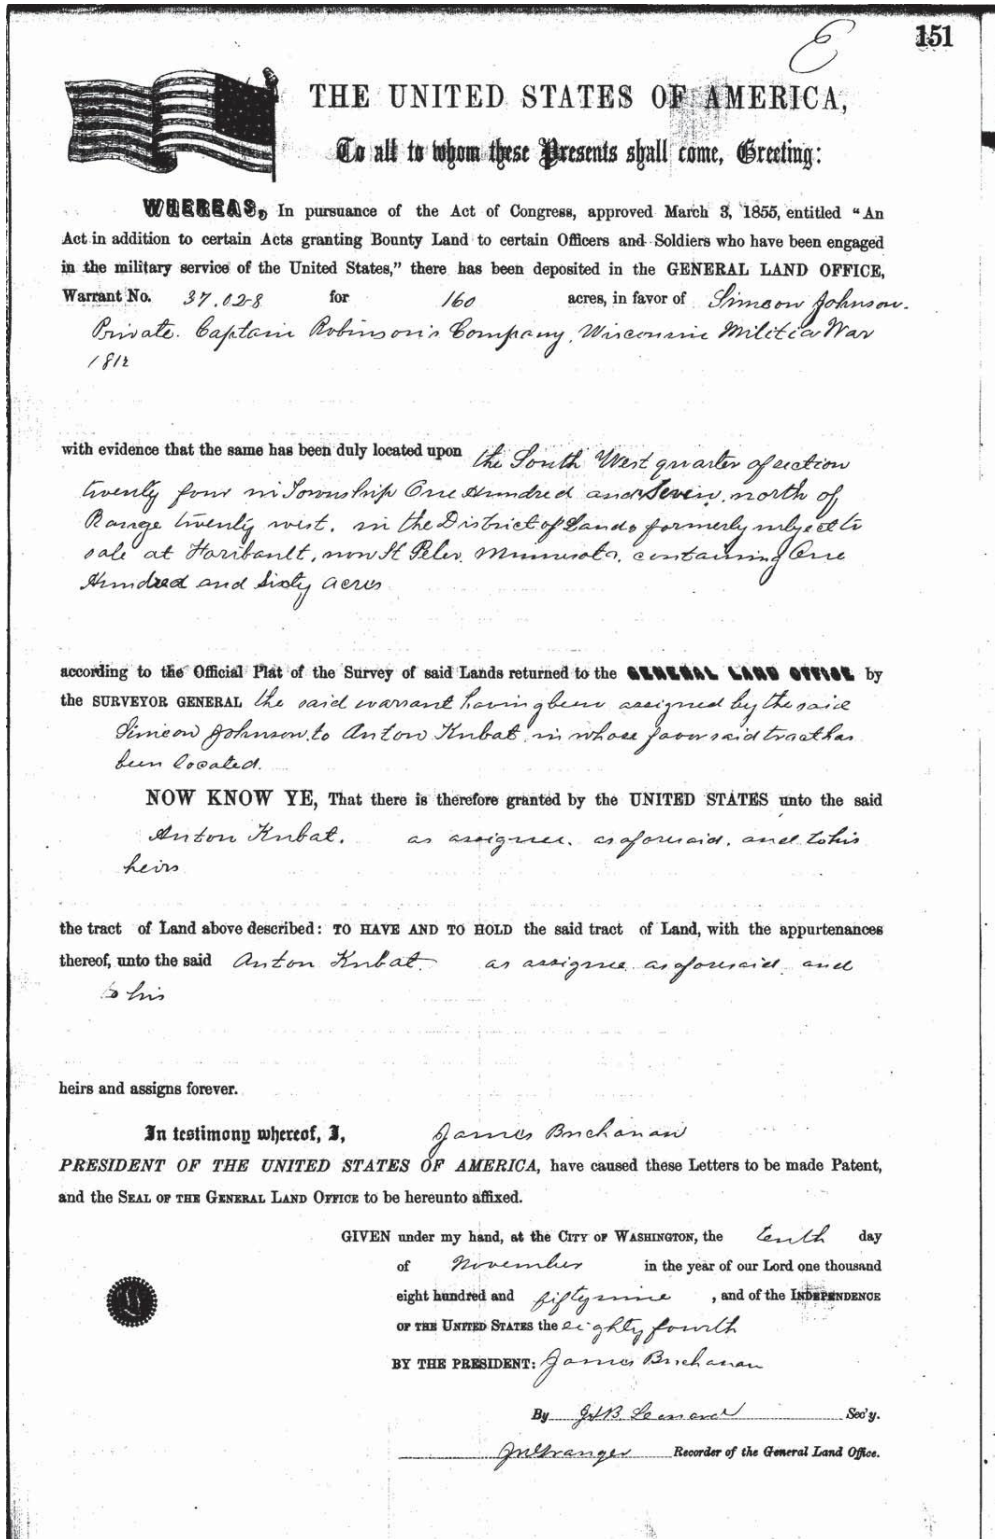 E 151
THE UNITED STATES OF AMERICA,
To all to whom these Presents shall come, Greeting:
WHEREAS, In pursuance of the Act of Congress, approved March 3, 1855, entitled "An
Act in addition to certain Acts granting Bounty Land to certain Officers and Soldiers who have been engaged
in the military service of the United States," there has been deposited in the GENERAL LAND OFFICE,
Warrant No. 37.028 for 160 acres, in favor of Simeon Johnson.
Private. Captain Robinson's Company, Wisconsin Militia War
1812
with evidence that the same has been duly located upon the South West quarter of section
twenty four in Township One Hundred and Seven, north of
Range twenty west, in the District of Lands formerly subject to
sale at Faribault, now St Peter, Minnesota, containing One
Hundred and Sixty acres
according to the Official Plat of the Survey of said Lands returned to the GENERAL LAND OFFICE by
the SURVEYOR GENERAL the said warrant having been assigned by the said
Simeon Johnson, to Anton Kubat, in whose favor said tract has
been located.
NOW KNOW YE, That there is therefore granted by the UNITED STATES unto the said
Anton Kubat. as assignee, as aforesaid, and to his
heirs
the tract of Land above described: TO HAVE AND TO HOLD the said tract of Land, with the appurtenances
thereof, unto the said Anton Kubat. as assignee as aforesaid and
to his
heirs and assigns forever.
In testimony whereof, I, James Buchanan
PRESIDENT OF THE UNITED STATES OF AMERICA, have caused these Letters to be made Patent,
and the SEAL OF THE GENERAL LAND OFFICE to be hereunto affixed.
GIVEN under my hand, at the CITY OF WASHINGTON, the tenth day
of November in the year of our Lord one thousand
eight hundred and fifty nine , and of the INDEPENDENCE
OF THE UNITED STATES the eighty fourth
BY THE PRESIDENT: James Buchanan
By J.B. Leonard Sec'y.
JN Granger Recorder of the General Land Office.